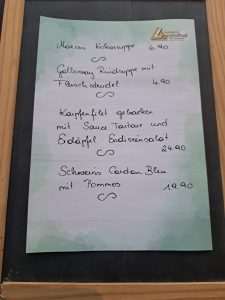 Maroni Kokossuppe 6.90
Galloway Rindsuppe mit
Fleischstrudel 4.90
Karpfenfilet gebacken
mit Sauce Tartare und
Erdäpfel Endiviensalat
24.90
Schweins Cordon Bleu
mit Pommes 19.90